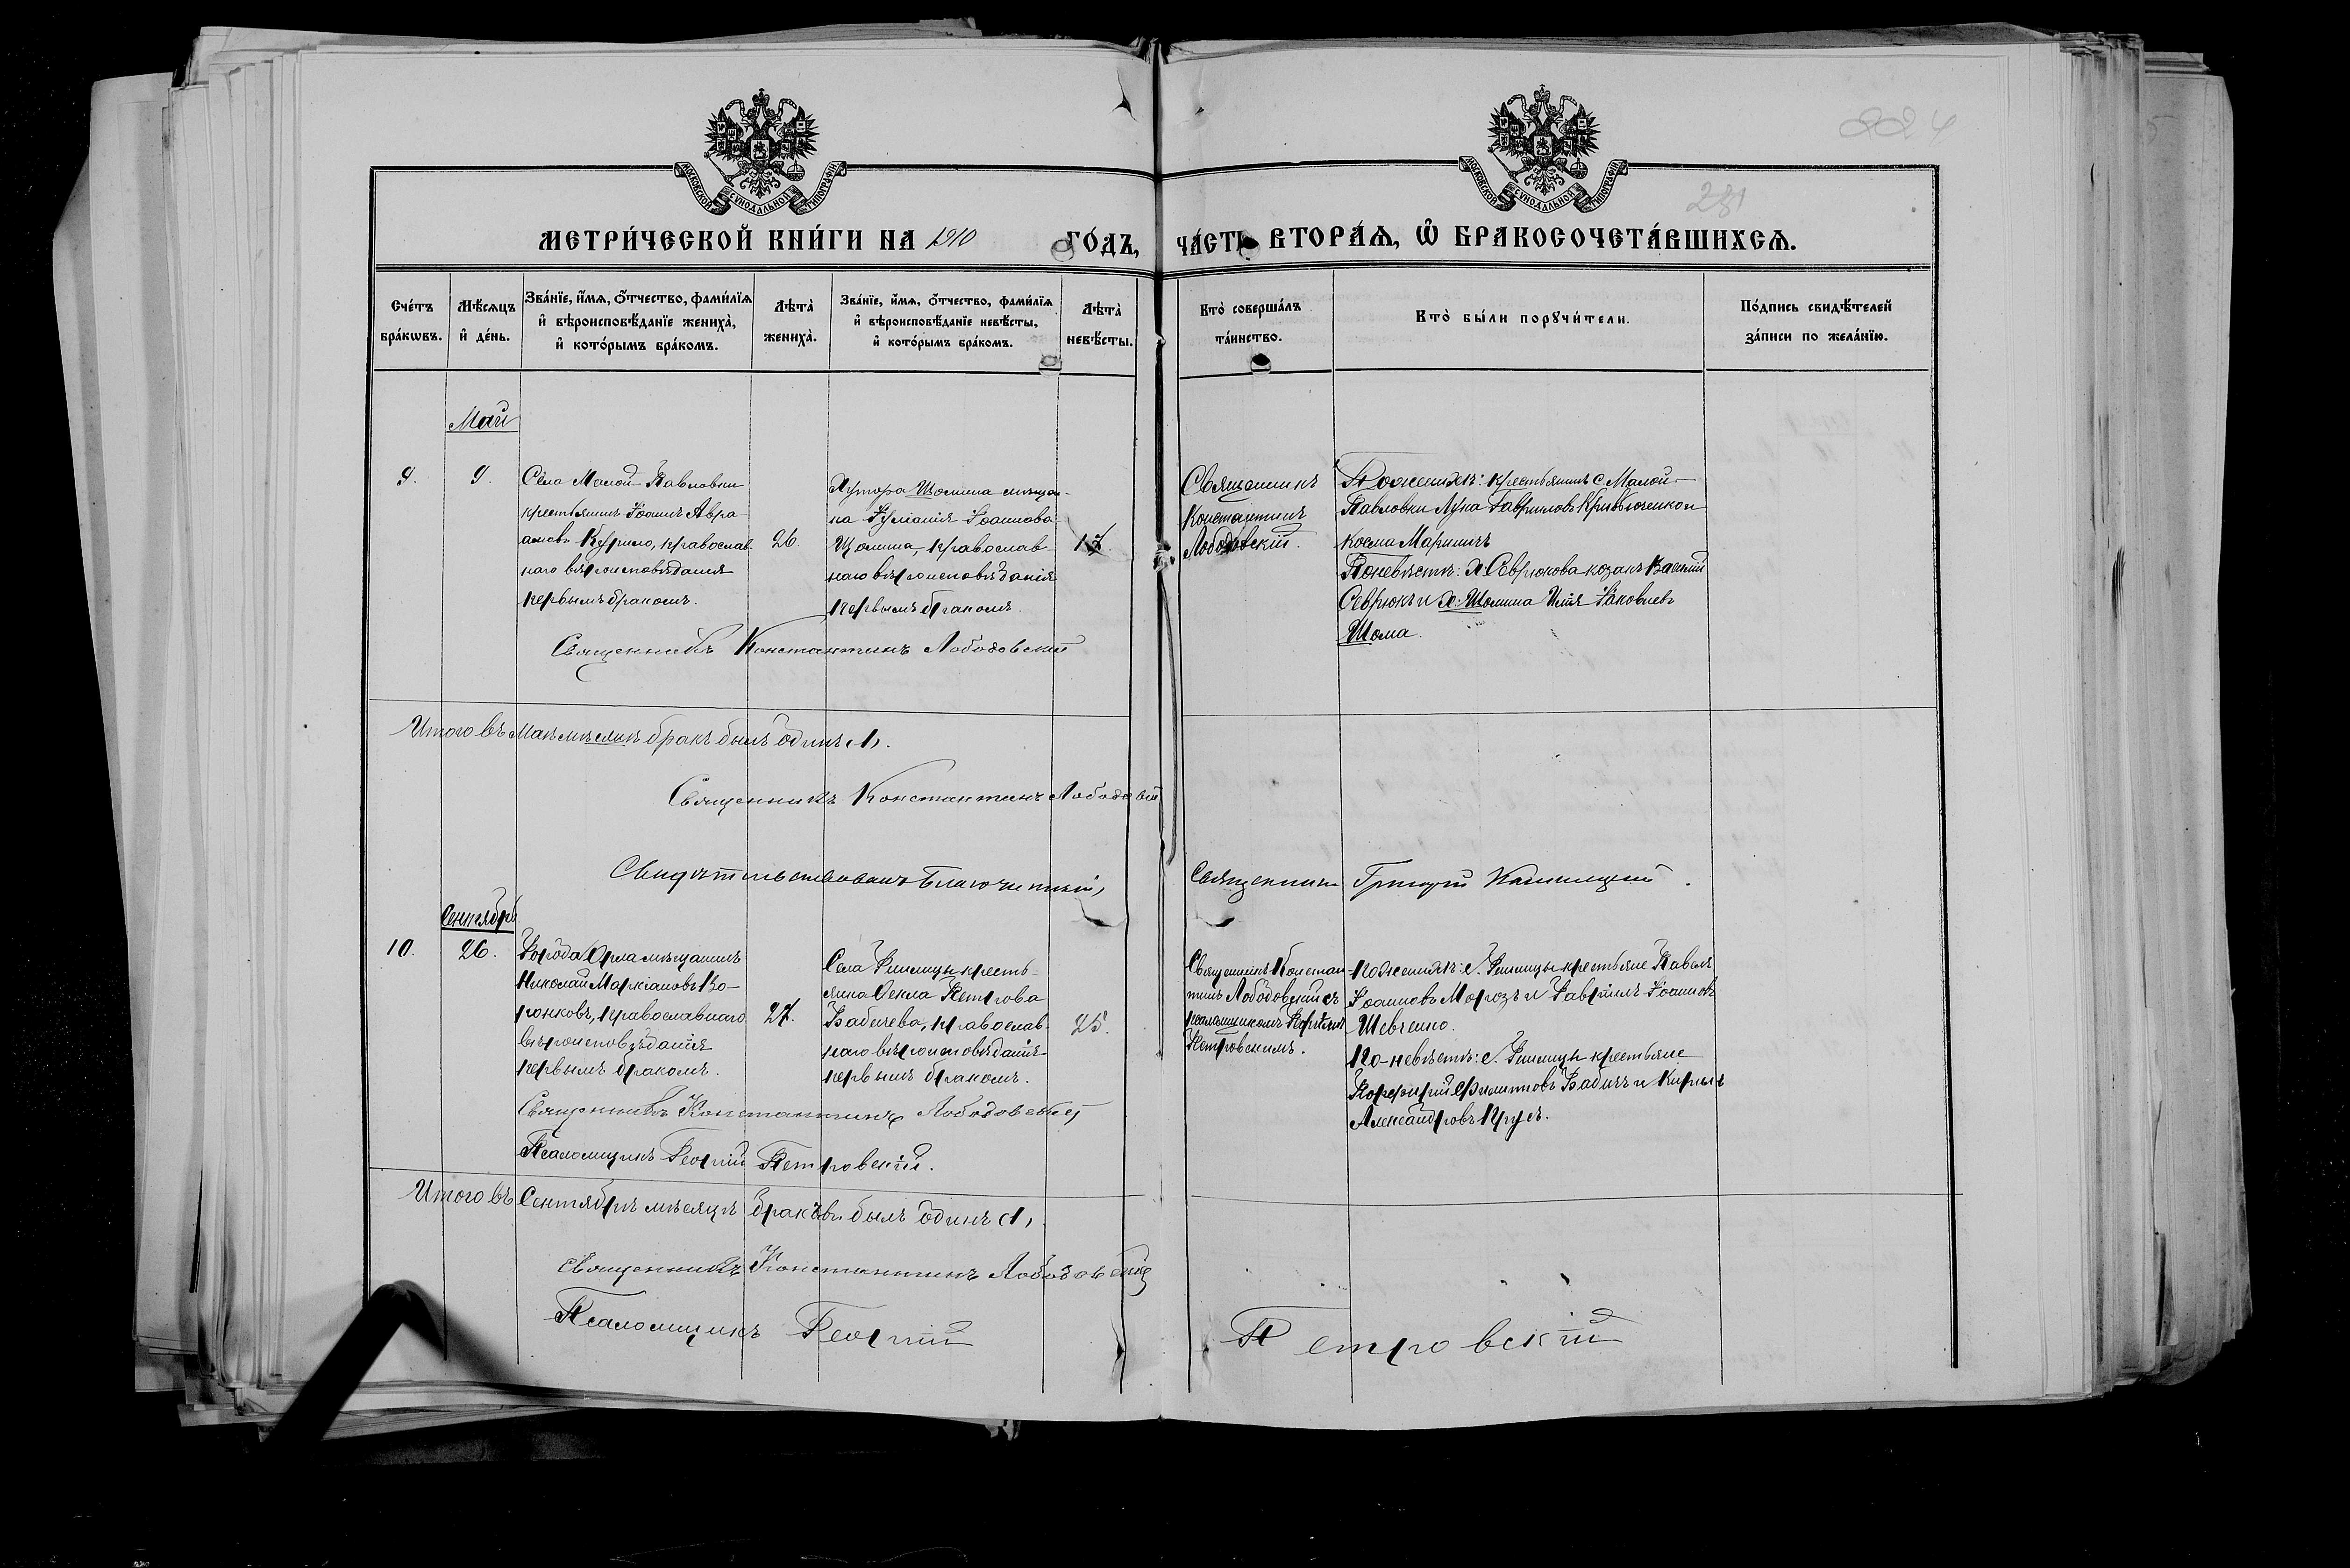 884
281
МОСКОВСКОЙ СѴНОДАЛЬНОЙ ТИПОГРАФІИ
МОСКОВСКОЙ СѴНОДАЛЬНОЙ ТИПОГРАФІИ
МЕТРИ́ЧЕСКОЙ КНИ́ГИ НА 1910 ГО́ДЪ, ЧА́СТЬ ВТОРА́Ѧ, Ѡ҆ БРАКОСОЧЕТА́ВШИХСѦ.
Сче́тъ
бра́кѡвъ.
Мѣ́сѧцъ
и҆ де́нь.
Зва́нїе, и҆́мѧ, ѻ҆́тчество, фами́лїѧ
и҆ вѣроисповѣ́данїе жениха̀,
и҆ кото́рымъ бра́комъ.
Лѣта̀
жениха̀.
Зва́нїе, и҆́мѧ, ѻ҆́тчество, фами́лїѧ
и҆ вѣроисповѣ́данїе невѣ́сты,
и҆ кото́рымъ бра́комъ.
Лѣта̀
невѣ́сты.
Кто̀ соверша́лъ
та́инство.
Кто̀ бы́ли порꙋчи́тели.
По́дпись свидѣ́телей
за́писи по жела́нїю.
Май
9.
9.
Села Малой-Павловки
крестьянинъ Іоаннъ Авра-
амовъ Курило, православ-
наго вѣроисповѣданія
первымъ бракомъ.
26.
Хутора Шомина мѣщан-
ка Іуліанія Іоаннова
Щомина, православ-
наго вѣроисповѣданія
первымъ бракомъ.
Священникъ
Константинъ
Лободовскій.
По женихѣ: крестьянинъ с Малой-
Павловки Лука Гавриловъ и
Косма Мариничъ
По невѣстѣ: х. Севрюкова козакъ Василій
Севрюкъ и х. Шомина Илія Іаковлевъ
Шома.
Священникъ Константинъ Лободовскій
Итого въ Маѣ мѣсяцѣ бракъ былъ одинъ (1).
Священникъ Константинъ Лободовскій
Свидѣтельствовалъ Благочинный, Священникъ Григорій
Сентябрь
10.
26.
Города Орла мѣщанинъ
Николай Маркіановъ Во-
ронковъ, православнаго
вѣроисповѣданія
первымъ бракомъ.
27.
Села крестья-
янка Ѳекла Петрова
Бабичева, православ-
наго вѣроисповѣданія
первымъ бракомъ.
25.
Священникъ Констан-
тинъ Лободовскій съ
псаломщикомъ Георгіемъ
Петровскимъ.
По женихѣ: с. крестьяне Павелъ
Іоанновъ Морозъ и Гавріилъ Іоанновъ
Шевченко.
По невѣстѣ: с. крестьяне
Порфирій Филипповъ Бабичъ и Кириллъ
Александровъ
Священникъ Константинъ Лободовскій
Псаломщикъ Георгій Петровскій.
Итого въ Сентябрѣ мѣсяцѣ браковъ былъ одинъ (1)
Священникъ Константинъ Лободовскій
Псаломщикъ Георгій Петровскій